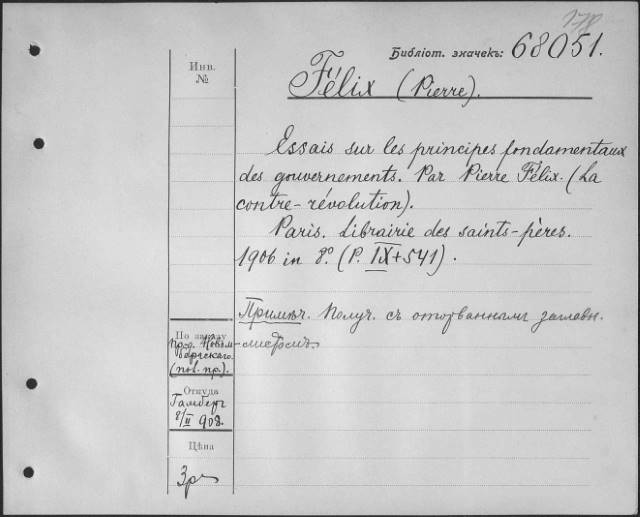 Библіот. значекъ: 68051.
Инв.
№
Félix (Pierre).
Essais sur les principes fondamentaux
des gouvernements. Par Pierre Félix. (La
contre-révolution).
Paris. Librairie des saints-pères.
1906 in 8º. (P. IX+541).
Примѣч. Получ. съ оторваннымъ заглавн.
листомъ.
По заказу
(пов. пр.).
Откуда
Гамберъ
8/II 908.
Цѣна
3 р